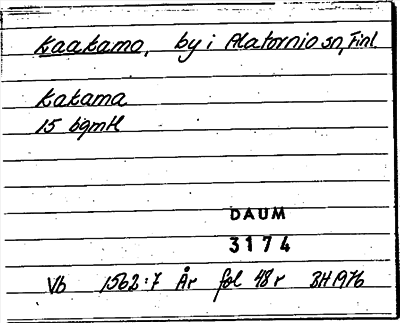 Kaakamo, by i Alatornio sn, Finl.
Kakama
15 bgmtl
DAUM
3174
Vb 1562:7 År fol 48r BH1976